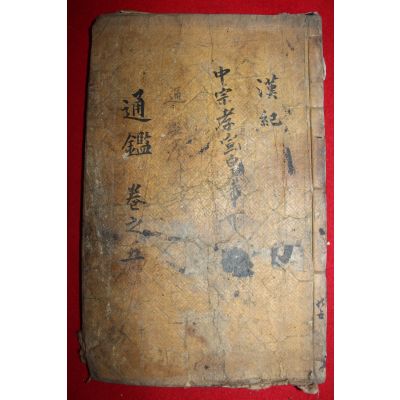 漢紀
中宗孝宣皇帝下
通鑑 卷之五